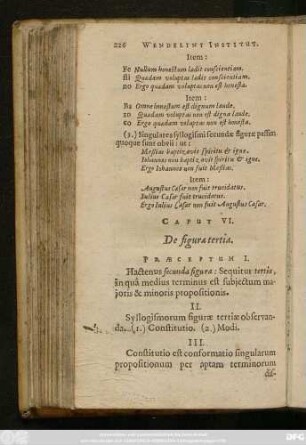 226 WENDELINI INSTITUT.
Item:
Fe Nullum honestum lædit conscientiam.
sti Quædam voluptas lædit conscientiam.
no Ergo quædam voluptas non est honesta.
Item:
Ba Omne honestum est dignum laude.
ro Quædam voluptas non est digna laude.
co Ergo quædam voluptas non est honesta.
(3.) Singulares syllogismi secundæ figuræ passim
quoque sunt obvii: ut:
Messias baptizavit spiritu & igne.
Iohannes non baptizavit spiritu & igne.
Ergo Iohannes non fuit Messias.
Item:
Augustus Cæsar non fuit trucidatus.
Iulius Cæsar fuit trucidatus.
Ergo Iulius Cæsar non fuit Augustus Cæsar.
CAPUT VI.
De figura tertia.
PRÆCEPTUM I.
Hactenus secunda figura: Sequitur tertia,
in quâ medius terminus est subjectum ma-
joris & minoris propositionis.
II.
Syllogismorum figuræ tertiæ observan-
da. (1.) Constitutio. (2.) Modi.
III.
Constitutio est conformatio singularum
propositionum per aptam terminorum
dis-